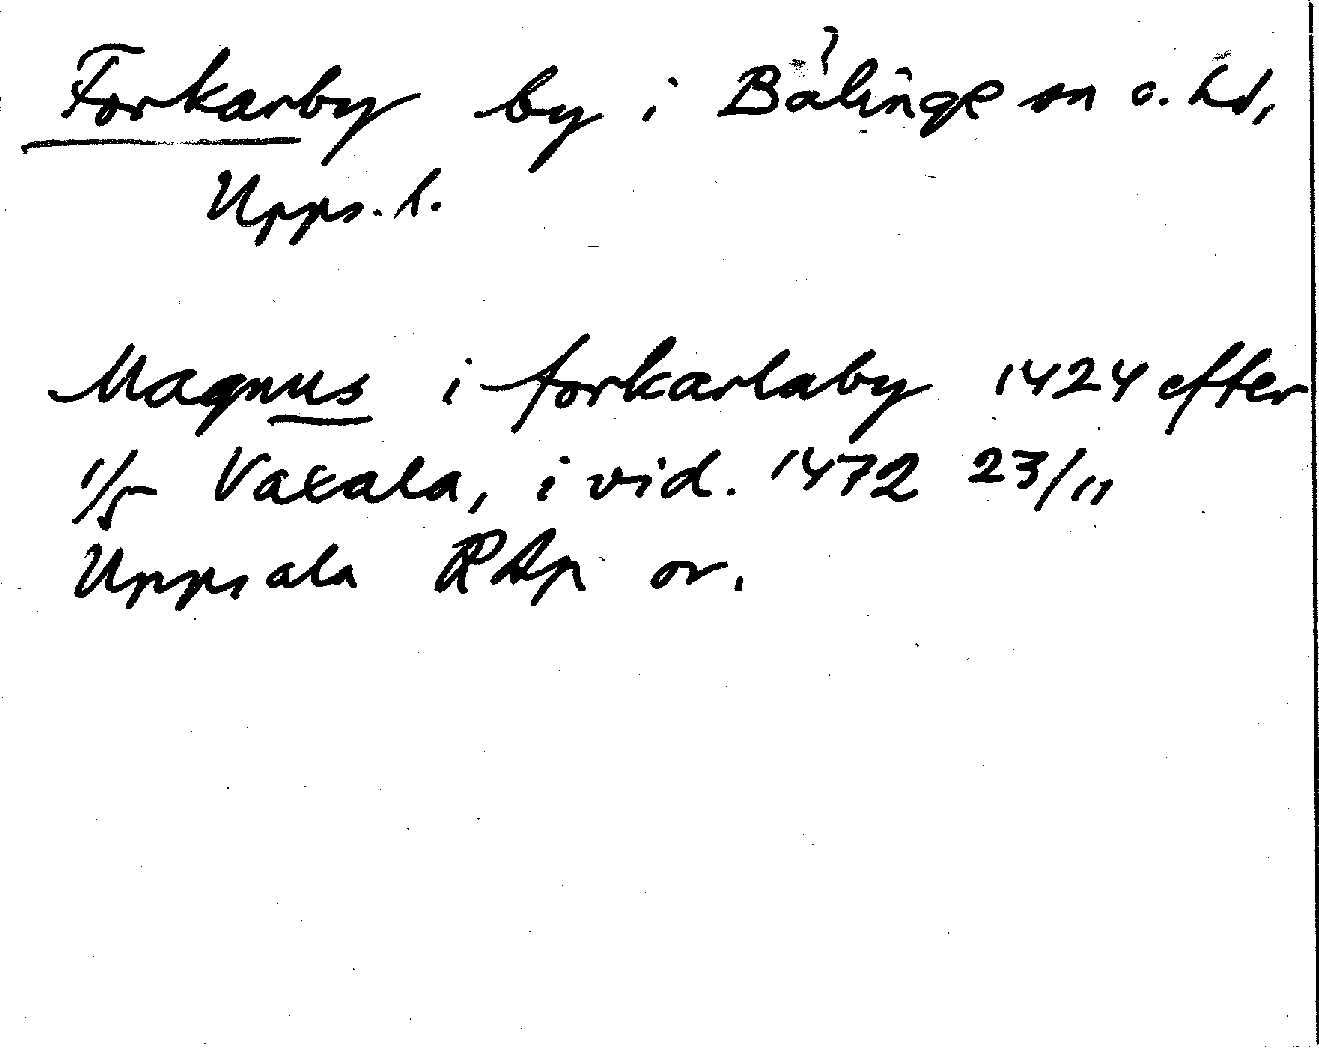 Forkarby by i Bälinge sn o. hd,
Upps. l.
Magnus i forkarlaby 1424 efter
1/5 Vaxala, i vid. 1472 23/11
Uppsala RAp or.